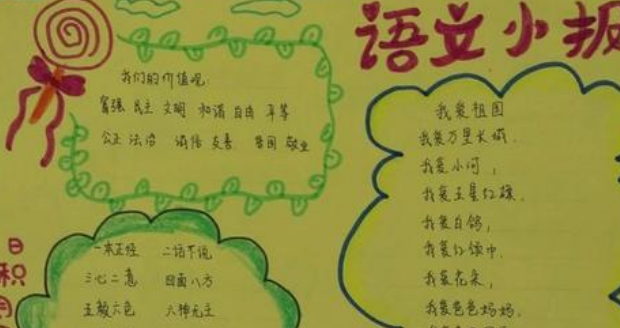 语文小报
我们的价值观:
富强 民主 文明 和谐 自由 平等
公正 法治 诚信 友善 爱国 敬业
我爱祖国
我爱万里长城.
我爱小河,
我爱五星红旗.
我爱白鸽,
我爱红领巾.
我爱花朵,
我爱爸爸妈妈.
日积月
一本正经 二话不说
三心二意 四面八方
五颜六色 六神无主